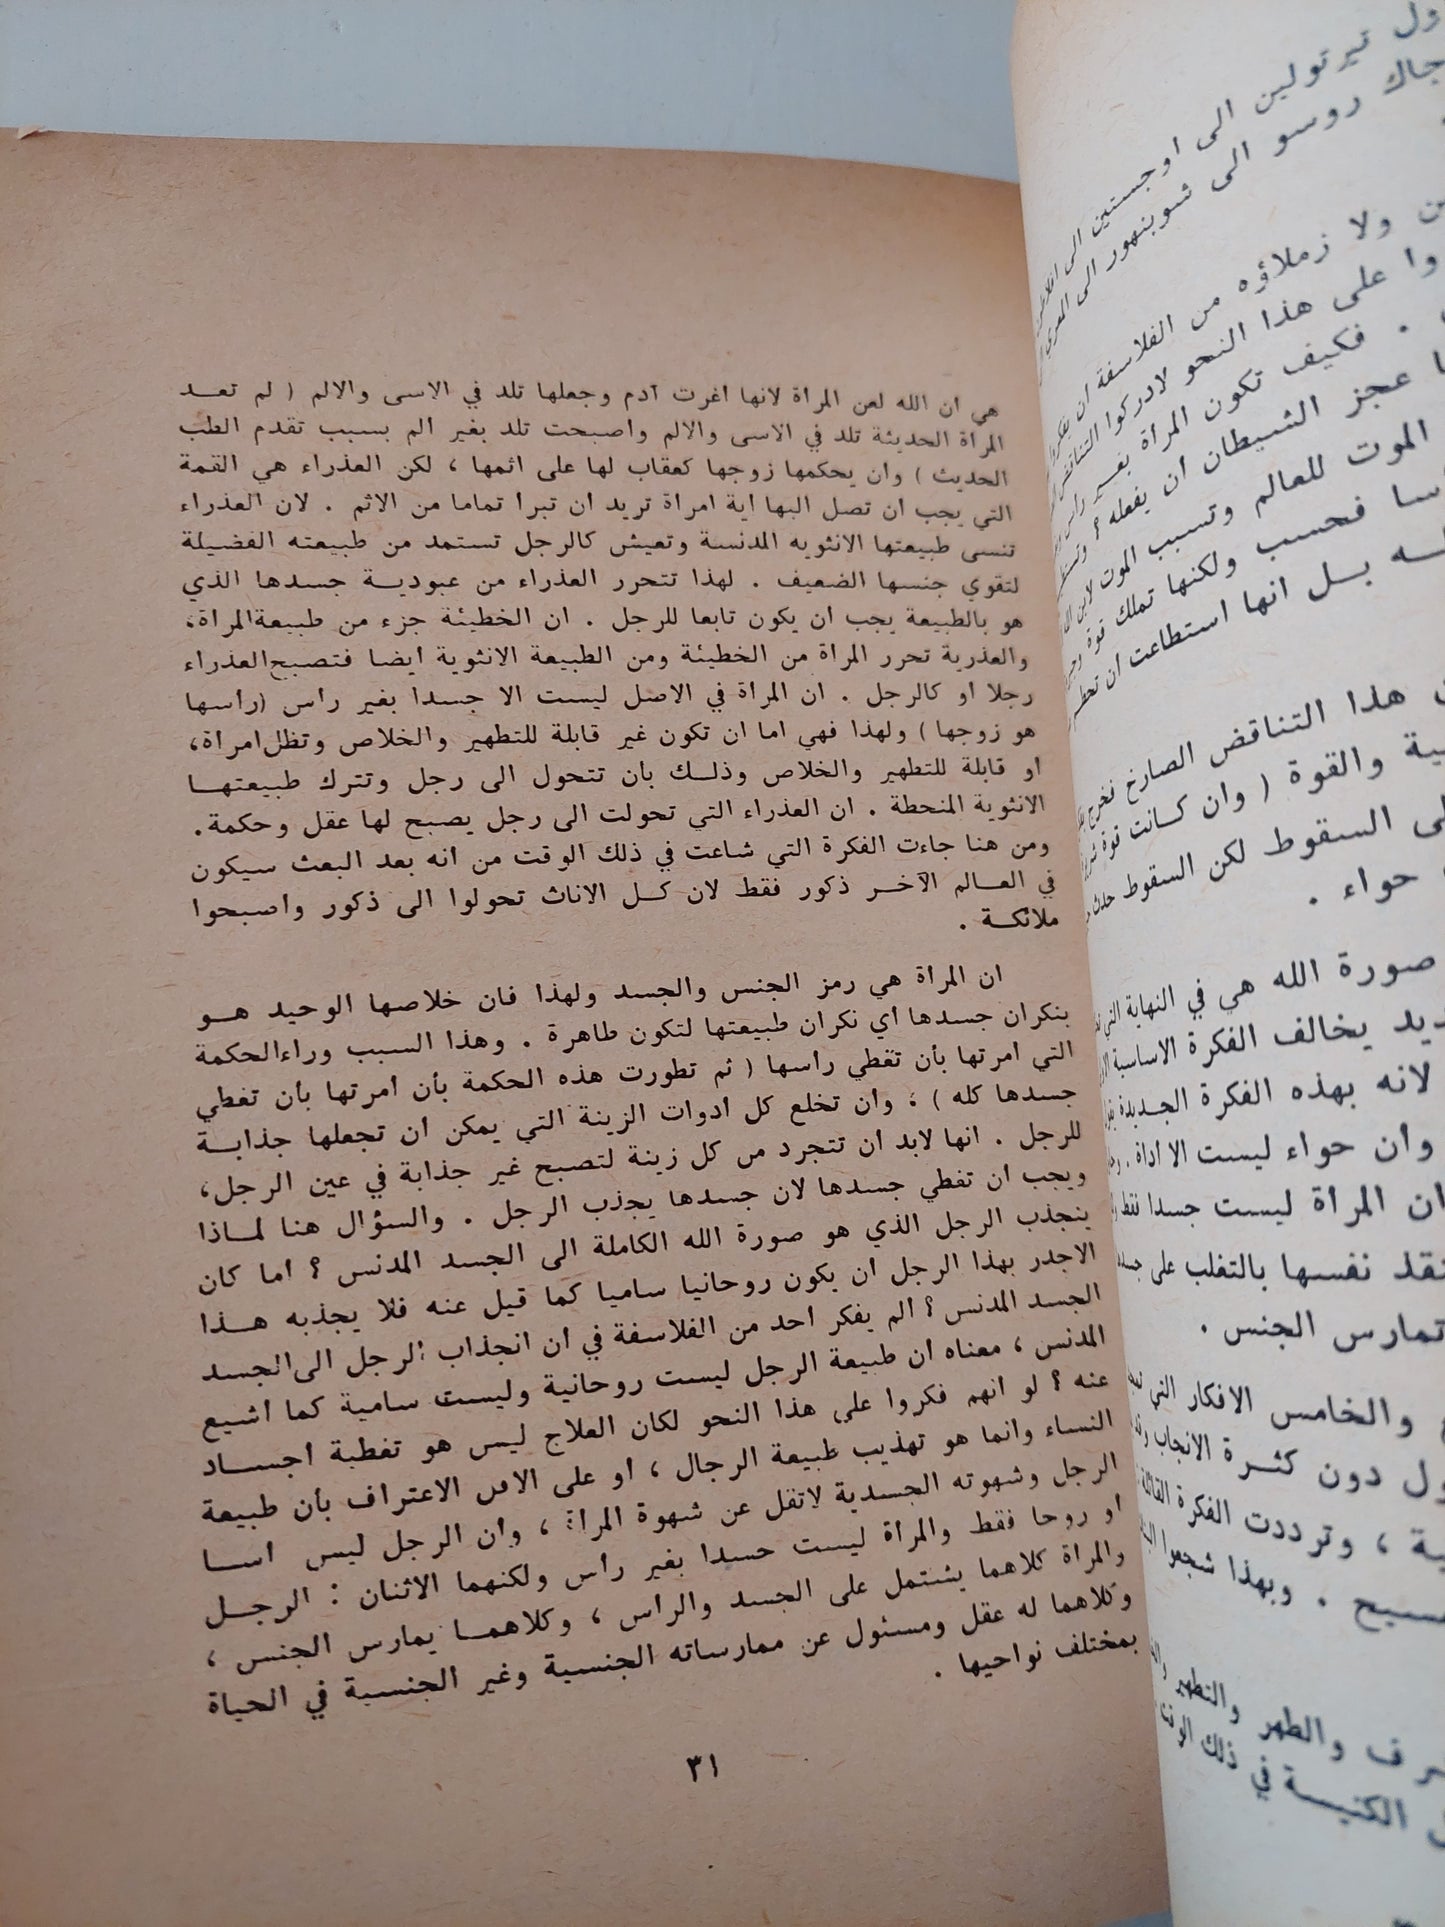 هي ان الله لعن المرأة لانها اغرت آدم وجعلها تلد في الاسى والالم ( لم تعــد
المرأة الحديثة تلد في الاسى والالم واصبحت تلد بغير الم بسبب تقدم الطب
الحديث ) وان يحكمها زوجها كعقاب لها على اثمها ، لكن العذراء هي القمة
التي يجب ان تصل اليها اية امرأة تريد ان تبرا تماما من الاثم . لان العذراء
تنسى طبيعتها الانثويه المدنسة وتعيش كالرجل تستمد من طبيعته الفضيلة
لتقوي جنسها الضعيف . لهذا تتحرر العذراء من عبوديــة جسدها الذي
هو بالطبيعة يجب ان يكون تابعا للرجل . ان الخطيئة جزء من طبيعة المرأة،
والعذرية تحرر المرأة من الخطيئة ومن الطبيعة الانثوية ايضا فتصبح العذراء
رجلا او كالرجل . ان المرأة في الاصل ليست الا جسدا بغير راس (راسها
هو زوجها ) ولهذا فهي اما ان تكون غير قابلة للتطهير والخلاص وتظل امرأة،
او قابلة للتطهير والخلاص وذلــك بان تتحول الى رجل وتترك طبيعتهــا
الانثوية المنحطة . ان العذراء التي تحولت الى رجل يصبح لها عقل وحكمة .
ومن هنا جاءت الفكرة التي شاعت في ذلك الوقت من انه بعد البعث سيكون
في العــالم الآخــر ذكور فقط لان كــل الاناث تحولوا الى ذكور واصبحوا
ملائكــة .
ان المرأة هي رمز الجنس والجسد ولهذا فان خلاصها الوحيد هــو
بنكران جسدها اي نكران طبيعتها لتكون طاهرة . وهذا السبب وراء الحكمة
التي امرتها بأن تغطي راسها ( ثم تطورت هذه الحكمة بأن امرتها بأن تغطي
جسدها كله ) ، وان تخلع كل ادوات الزينة التي يمكن ان تجعلها جذابــة
للرجل . انها لابد ان تتجرد من كل زينة لتصبح غير جذابة في عين الرجل،
ويجب ان تغطي جسدها لان جسدها يجذب الرجل . والسؤال هنا لماذا
ينجذب الرجل الذي هو صورة الله الكاملة الى الجسد المدنس ؟ اما كان
الاجدر بهذا الرجل ان يكون روحانيا ساميا كما قيل عنه فلا يجذبه هــذا
الجسد المدنس ؟ الم يفكر احد من الفلاسفة في ان انجذاب الرجل الى الجسد
المدنس ، معناه ان طبيعة الرجل ليست روحانية وليست سامية كما اشيع
عنه ؟ لو انهم فكروا على هذا النحو لكان العلاج ليس هو تغطية اجســاد
النساء وانما هو تهذيب طبيعة الرجال ، او على الاقل الاعتراف بأن طبيعة
الرجل وشهوته الجسدية لاتقل عن شهوة المرأة ، وان الرجل ليس اســا
او روحا فقط والمرأة ليست جسدا بغير راس ولكنهما الاثنان : الرجــل
والمرأة كلاهما يشتمل على الجسد والراس ، وكلاهمــا يمارس الجنس ،
وكلاهما له عقل ومسئول عن ممارساته الجنسية وغير الجنسية في الحياة
بمختلف نواحيها .
٣١
تيرتولين الى اوجستين الى
جاك روسو الى شوبنهور الى
ولا زملاؤه من الفلاسفة ان يفكروا
على هذا النحو لادركوا التناقض
. فكيف تكون المرأة بغير راس
عجز الشيطان ان يفعله ؟
الموت للعالم وتسبب الموت لابن
فحسب ولكنها تملك قوة
بــل انها استطاعت ان تحطم
هذا التناقض الصارخ نخرج
والقوة ( وان كــانت قوة
السقوط لكن السقوط حدث
حواء .
صورة الله هي في النهاية التي
يخالف الفكرة الاساسية
لانه بهذه الفكرة الجــديدة
وان حواء ليست الا اداة .
ان المرأة ليست جسدا فقط
نفسها بالتغلب على
تمارس الجنس .
والخامس الافكار التي
دون كثــرة الانجاب
، وترددت الفكرة
. وبهذا شجعوا
والطهر والتطهير
الكنيســة في ذلك الوقت